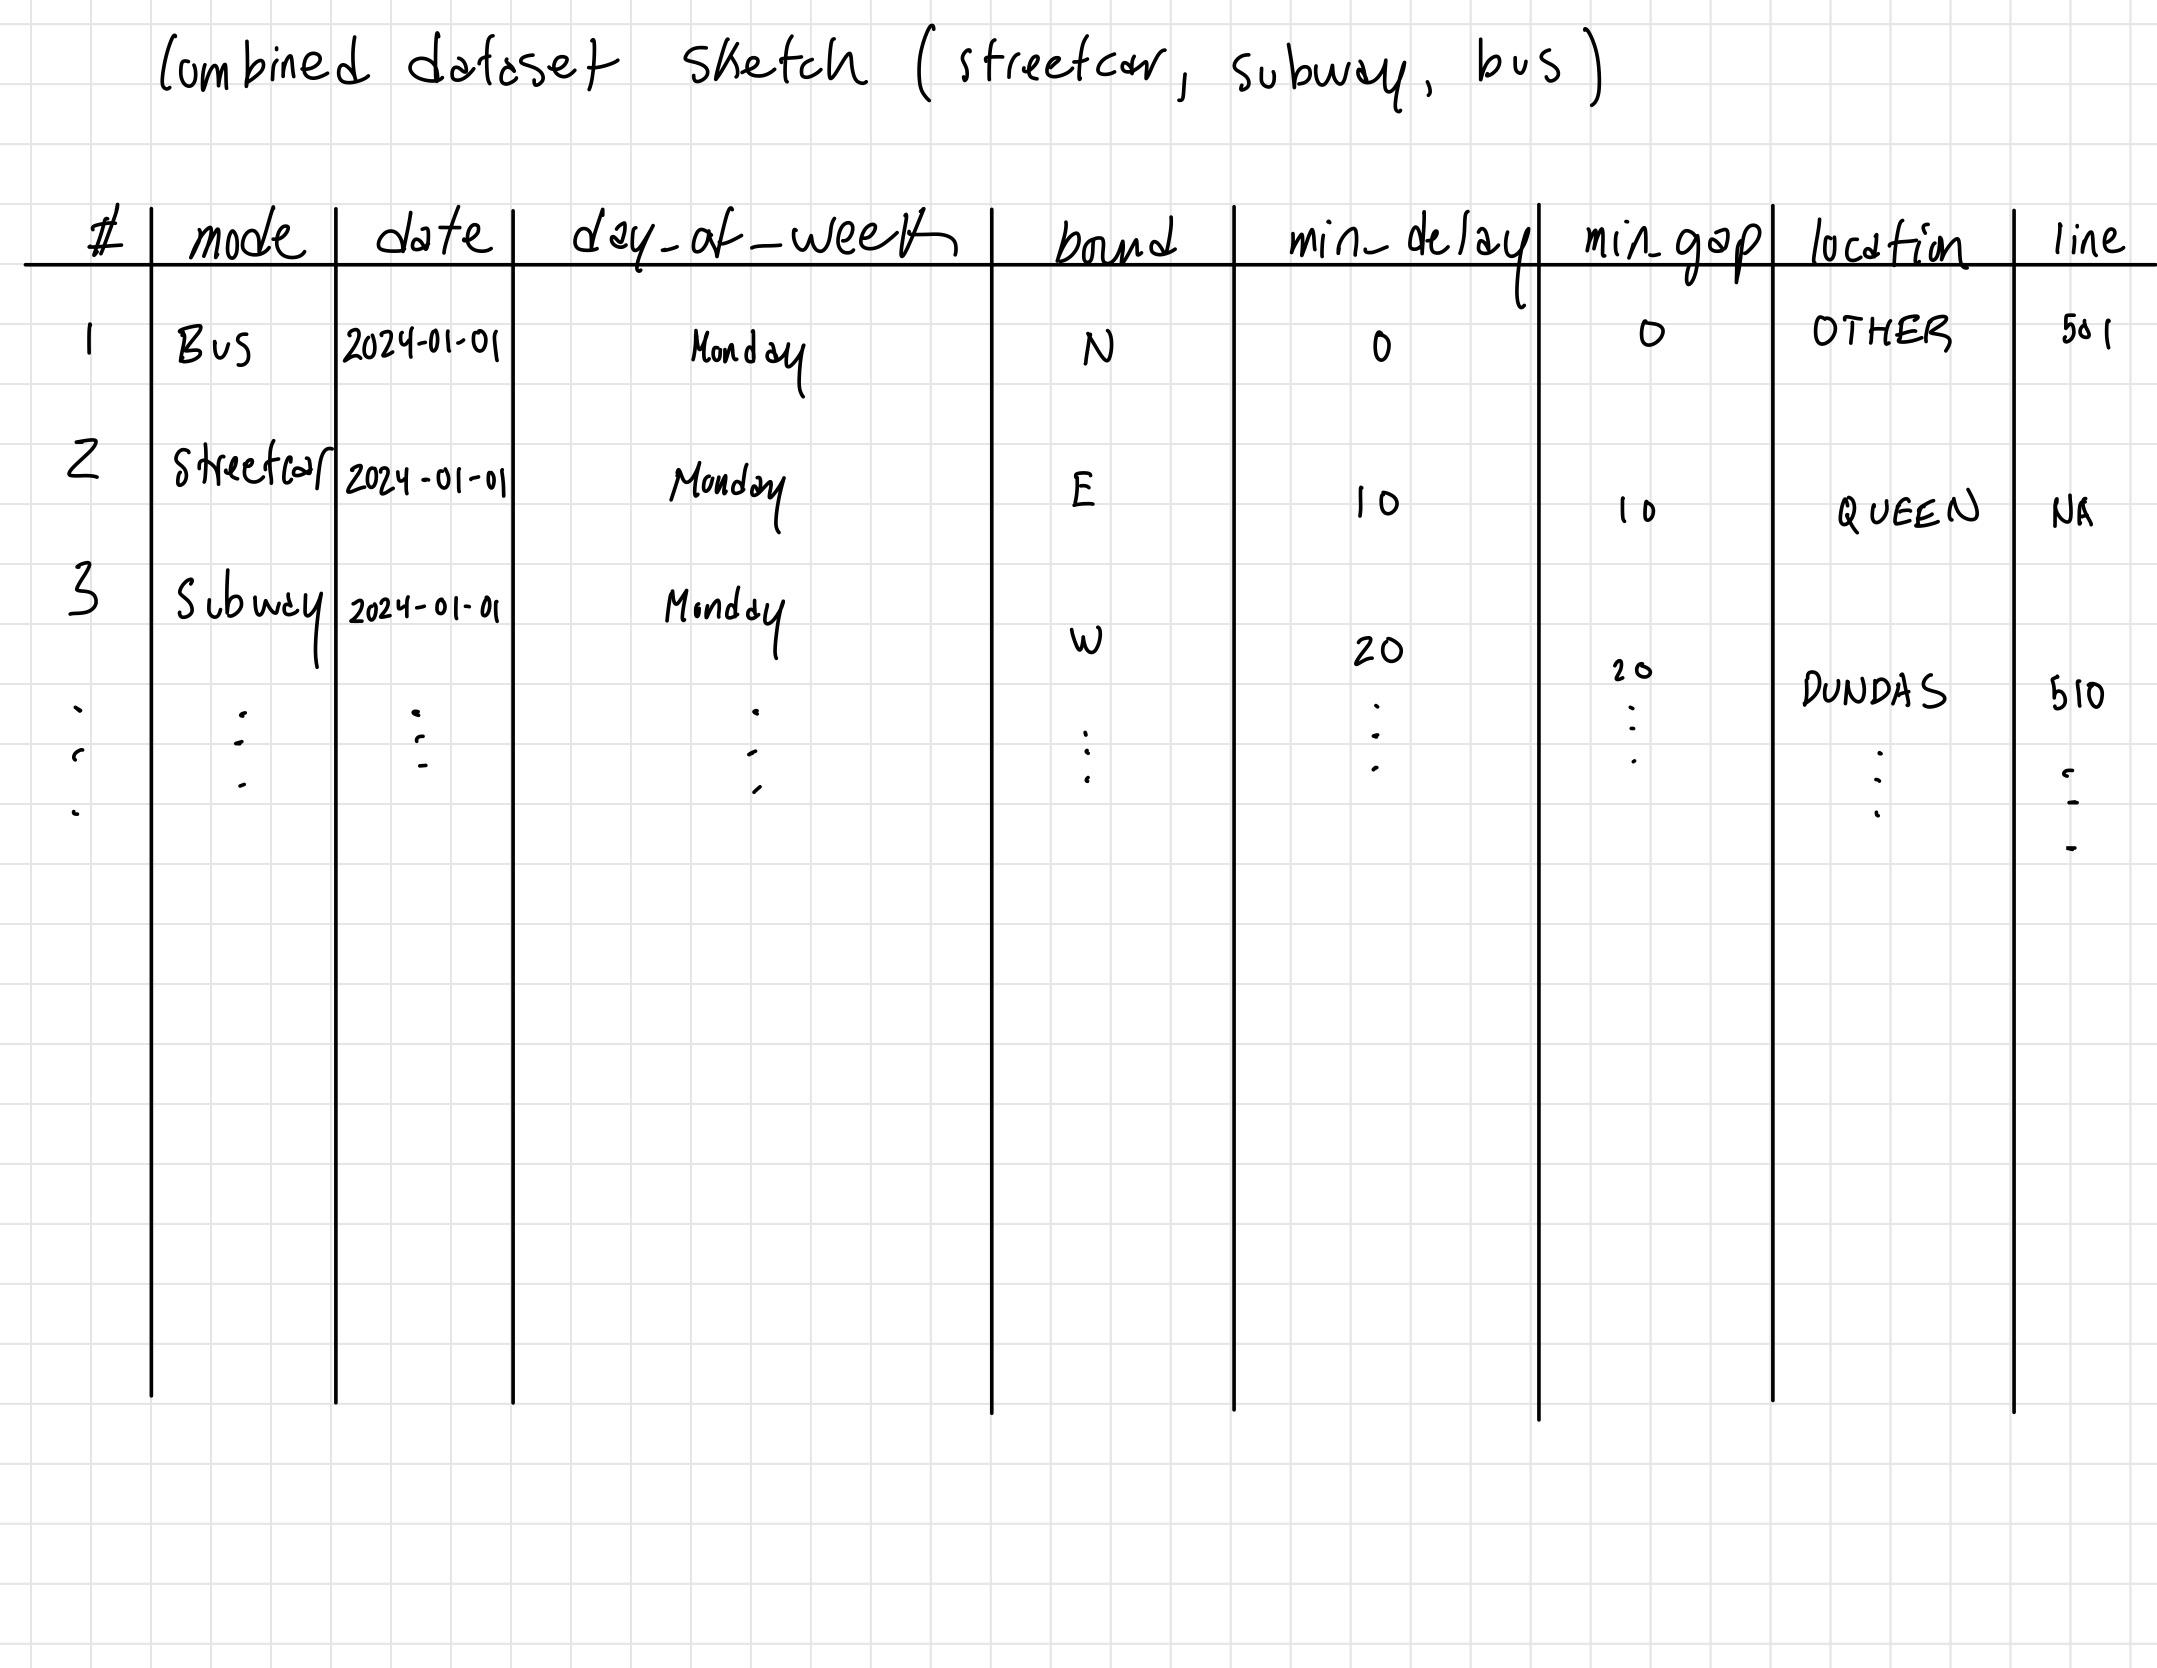 Combined dataset sketch (streetcar, subway, bus)
# mode date day_of_week bound min_delay min_gap location line
1 Bus 2024-01-01 Monday N 0 0 OTHER 501
2 Streetcar 2024-01-01 Monday E 10 10 QUEEN NA
3 Subway 2024-01-01 Monday W 20 20 DUNDAS 510